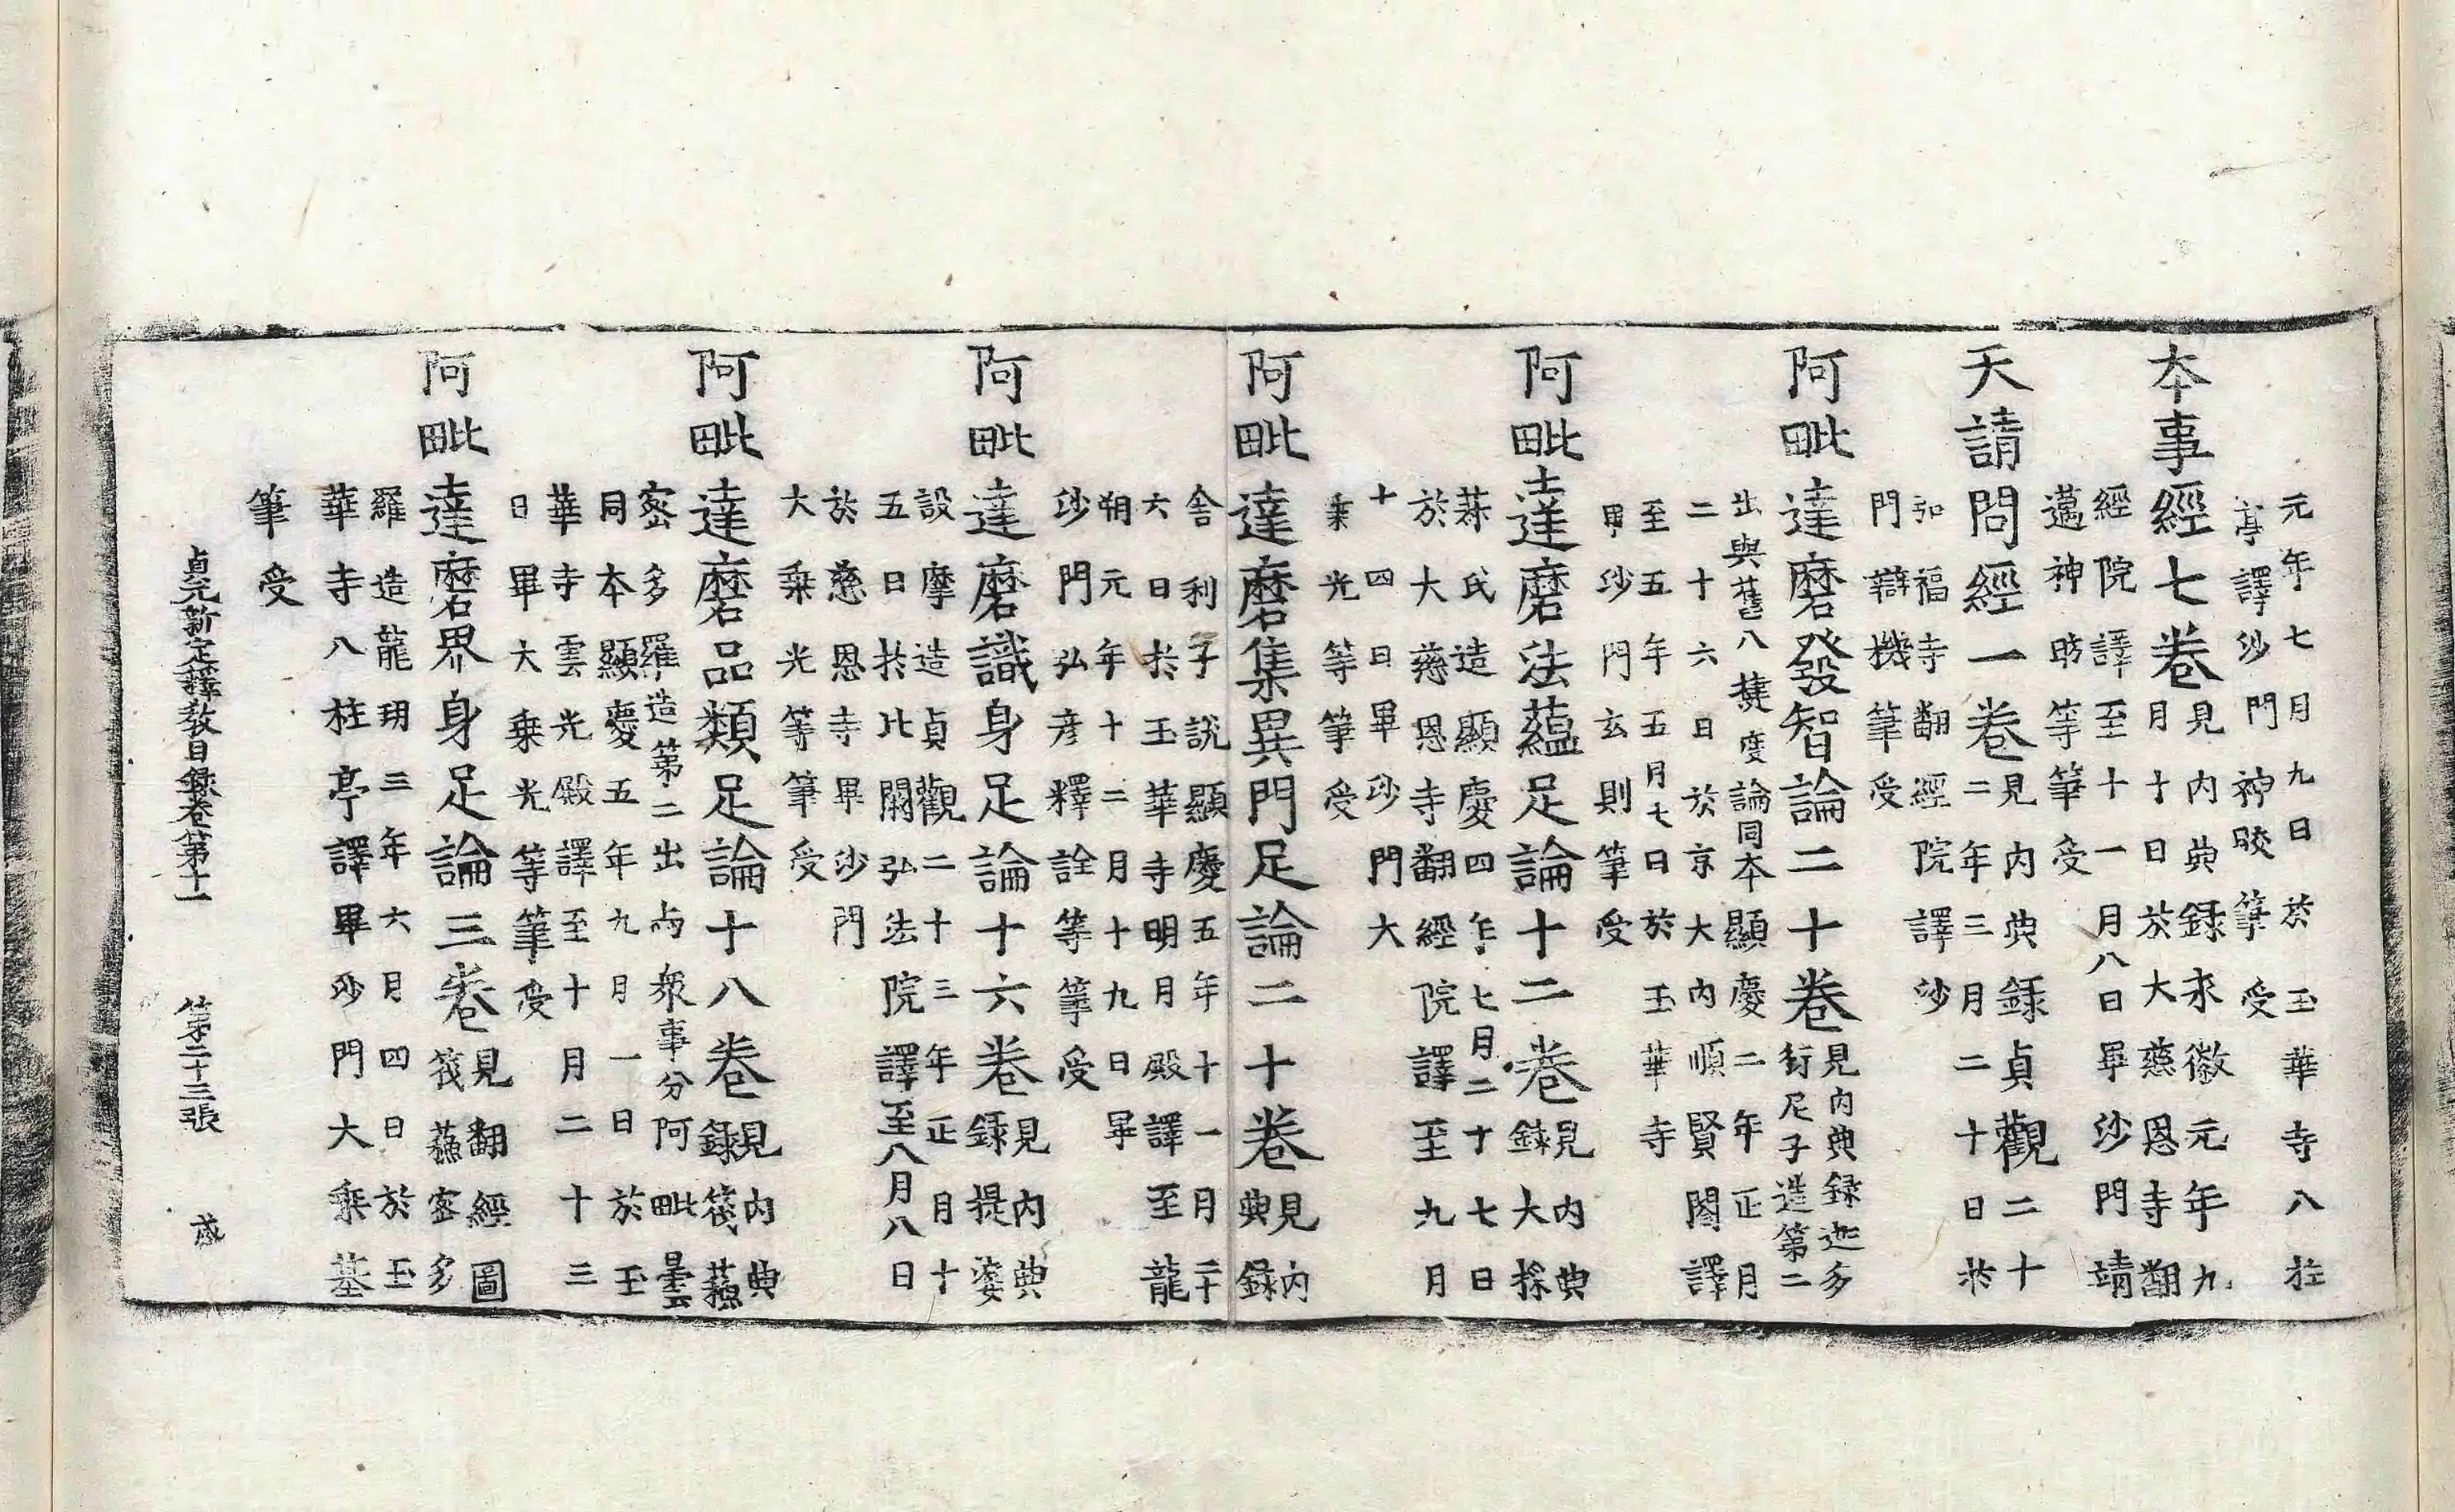 元年七月九日於玉華寺八柱
亭譯沙門神皎筆受
本事經七卷見內典錄永徽元年九
月十日於大慈恩寺翻
經院譯至十一月八日畢沙門靖
邁神昉等筆受
天請問經一卷見內典錄貞觀二十
二年三月二十日於
弘福寺翻經院譯沙
門辯機筆受
阿毗達磨發智論二十卷見內典錄迦多
衍尼子造第二
出與舊八揵度論同本顯慶二年正月
二十六日於京大內順賢閣譯
至五年五月七日於玉華寺
畢沙門玄則筆受
阿毗達磨法蘊足論十二卷見內典
錄大採
菽氏造顯慶四年七月二十七日
於大慈恩寺翻經院譯至九月
十四日畢沙門大
乘光等筆受
阿毗達磨集異門足論二十卷見內
典錄
舍利子說顯慶五年十一月二十
六日於玉華寺明月殿譯至龍
朔元年十二月十九日畢
沙門弘彥釋詮等筆受
阿毗達磨識身足論十六卷見內典
錄提婆
設摩造貞觀二十三年正月十
五日於北闕弘法院譯至八月八日
於慈恩寺畢沙門
大乘光等筆受
阿毗達磨品類足論十八卷見內典
錄筏蘇
密多羅造第二出与眾事分阿毗曇
同本顯慶五年九月一日於玉
華寺雲光殿譯至十月二十三
日畢大乘光等筆受
阿毗達磨界身足論三卷見翻經圖
筏蘇密多
羅造龍朔三年六月四日於玉
華寺八柱亭譯畢沙門大乘基
筆受
貞元新定釋教目錄卷第十一 第二十三張